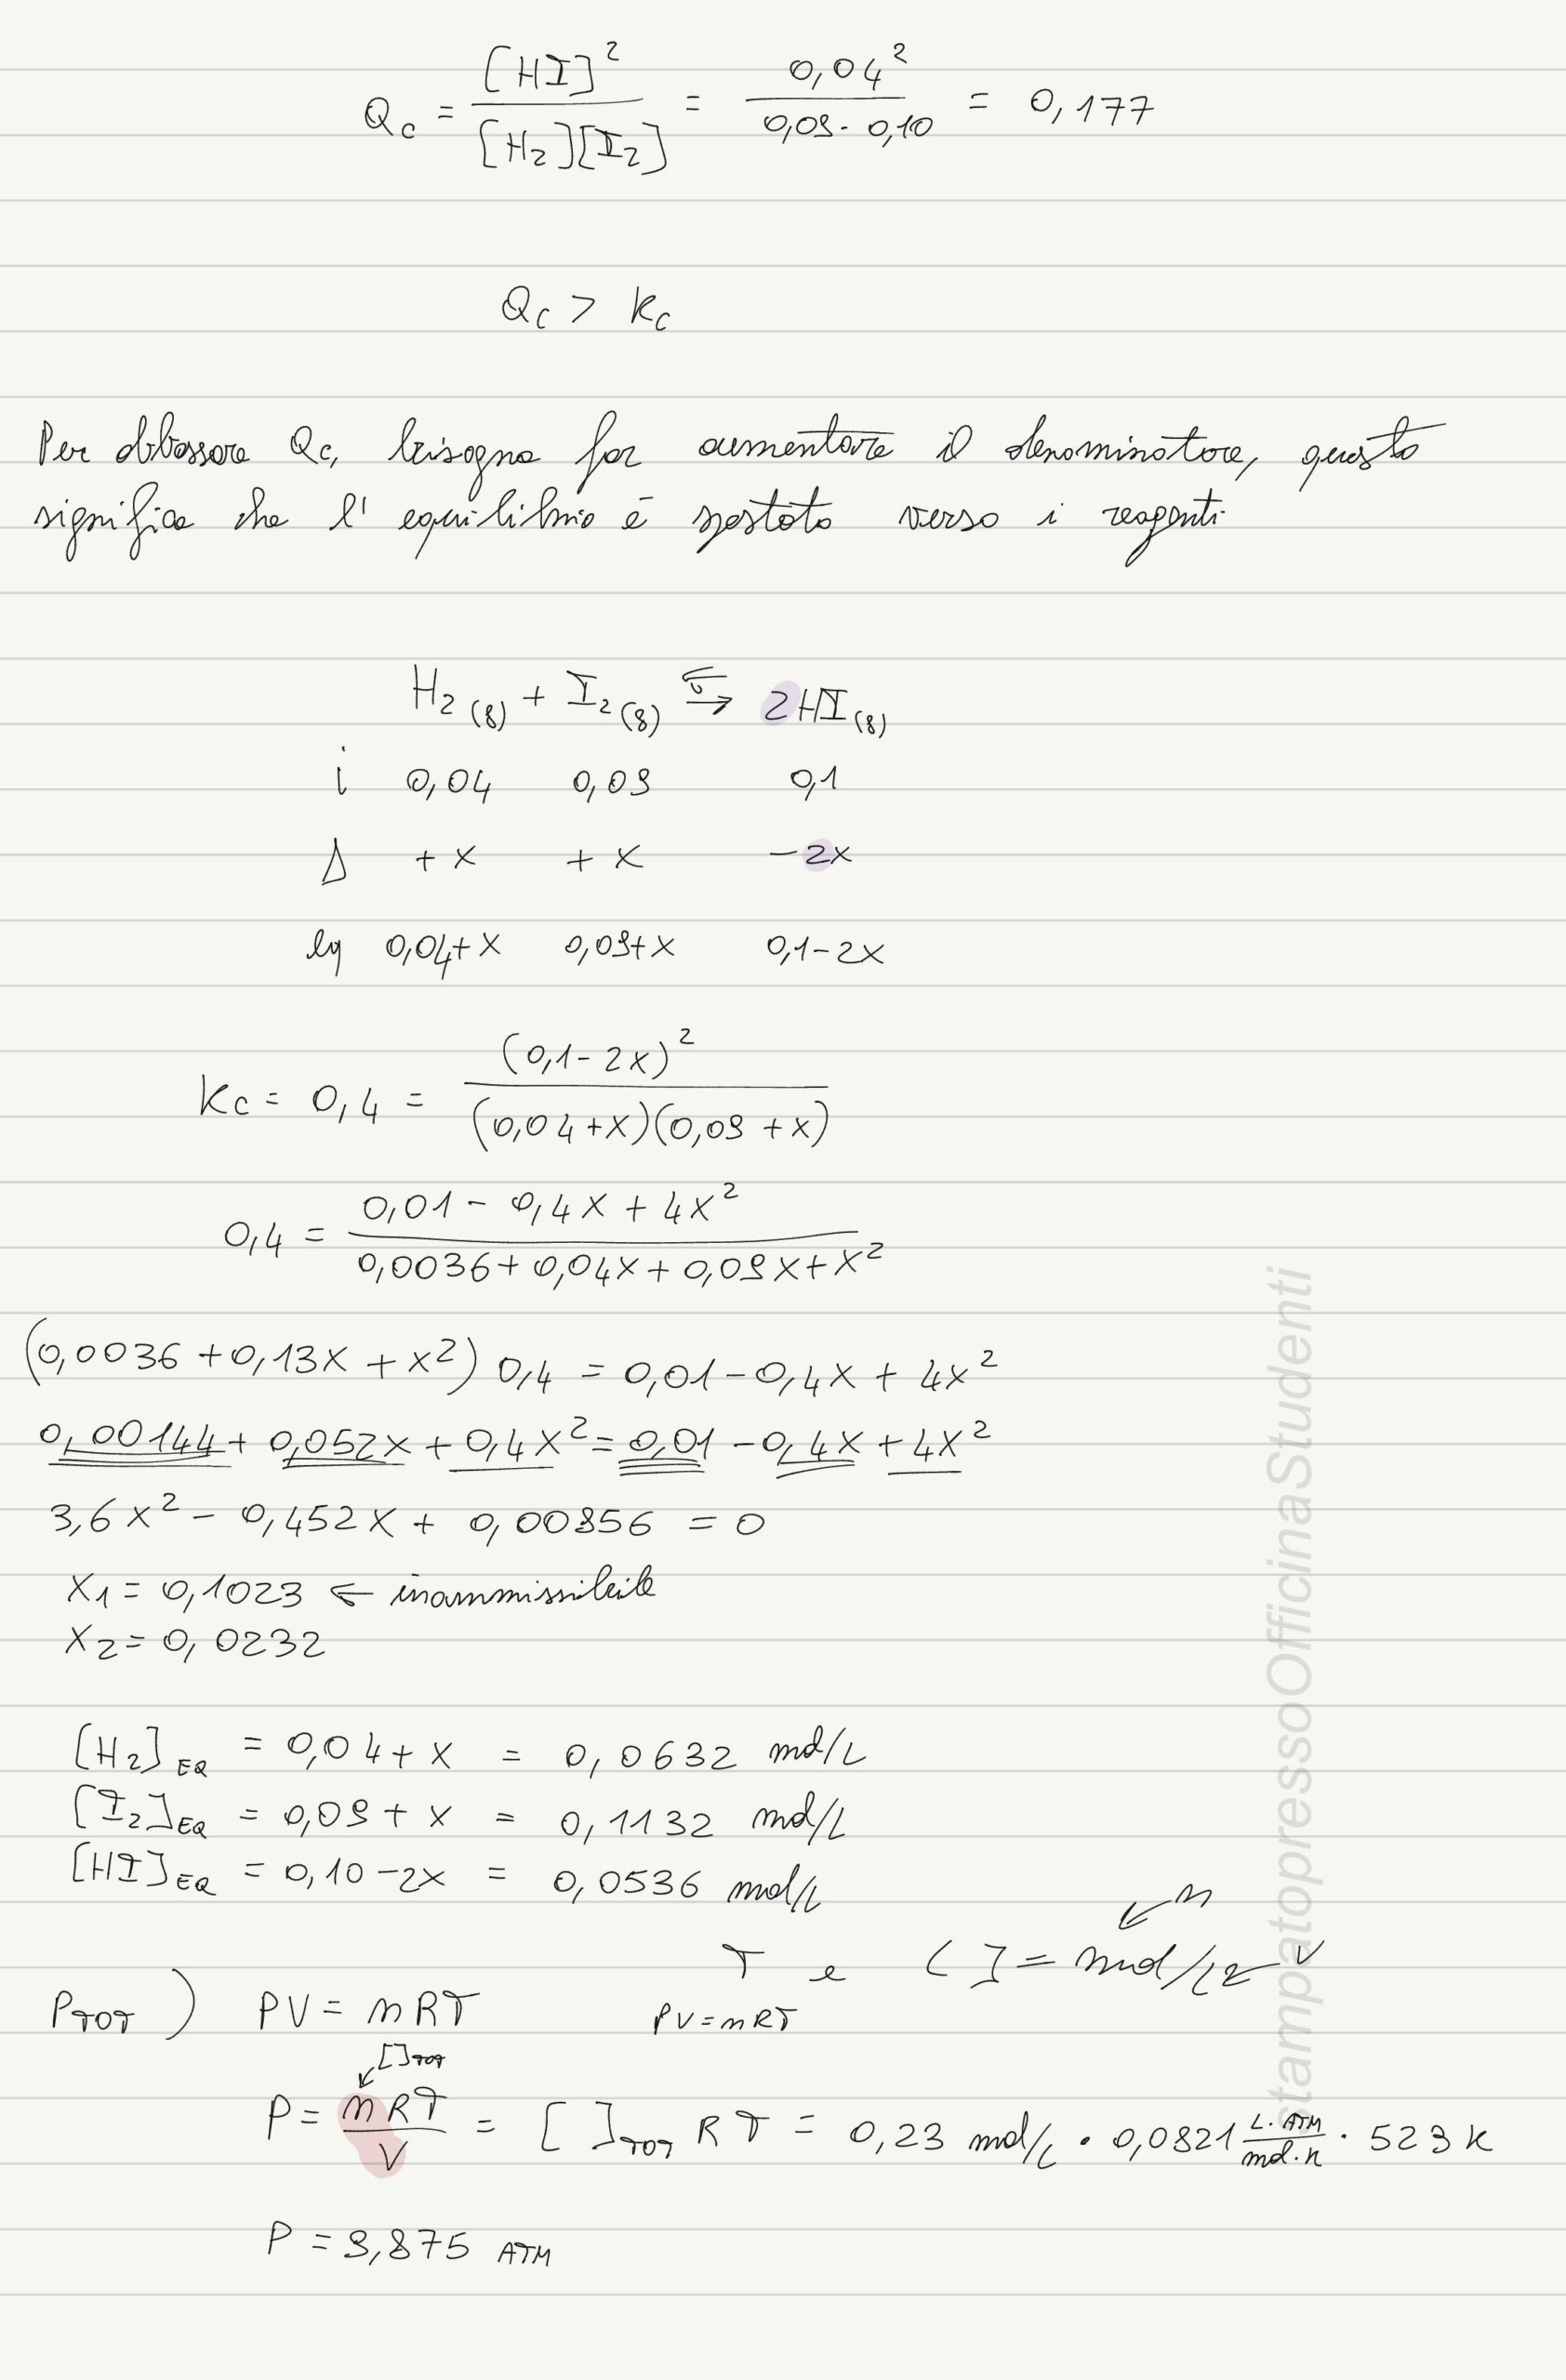 Qc = [HI]² / [H₂][I₂] = 0,04² / 0,09 · 0,10 = 0,177
Qc > Kc
Per abbassare Qc, bisogna far aumentare il denominatore, questo
significa che l' equilibrio è spostato verso i reagenti
H₂(g) + I₂(g) ⇆ 2HI(g)
i 0,04 0,09 0,1
Δ + x + x - 2x
eq 0,04+x 0,09+x 0,1-2x
Kc = 0,4 = (0,1-2x)² / (0,04+x)(0,09+x)
0,4 = 0,01 - 0,4x + 4x² / 0,0036 + 0,04x + 0,09x + x²
(0,0036 + 0,13x + x²) 0,4 = 0,01 - 0,4x + 4x²
0,00144 + 0,052x + 0,4x² = 0,01 - 0,4x + 4x²
3,6x² - 0,452x + 0,00856 = 0
x₁ = 0,1023 ← inammissibile
x₂ = 0,0232
[H₂]EQ = 0,04 + x = 0,0632 mol/L
[I₂]EQ = 0,09 + x = 0,1132 mol/L
[HI]EQ = 0,10 - 2x = 0,0536 mol/L
↙ n
T e [ ] = mol/L ← V
PTOT ) PV = nRT PV = nRT
↙ [ ]TOT
P = nRT / V = [ ]TOT R T = 0,23 mol/L · 0,0821 L·ATM / mol·K · 523 K
P = 9,875 ATM
stampatopressoOfficinaStudenti